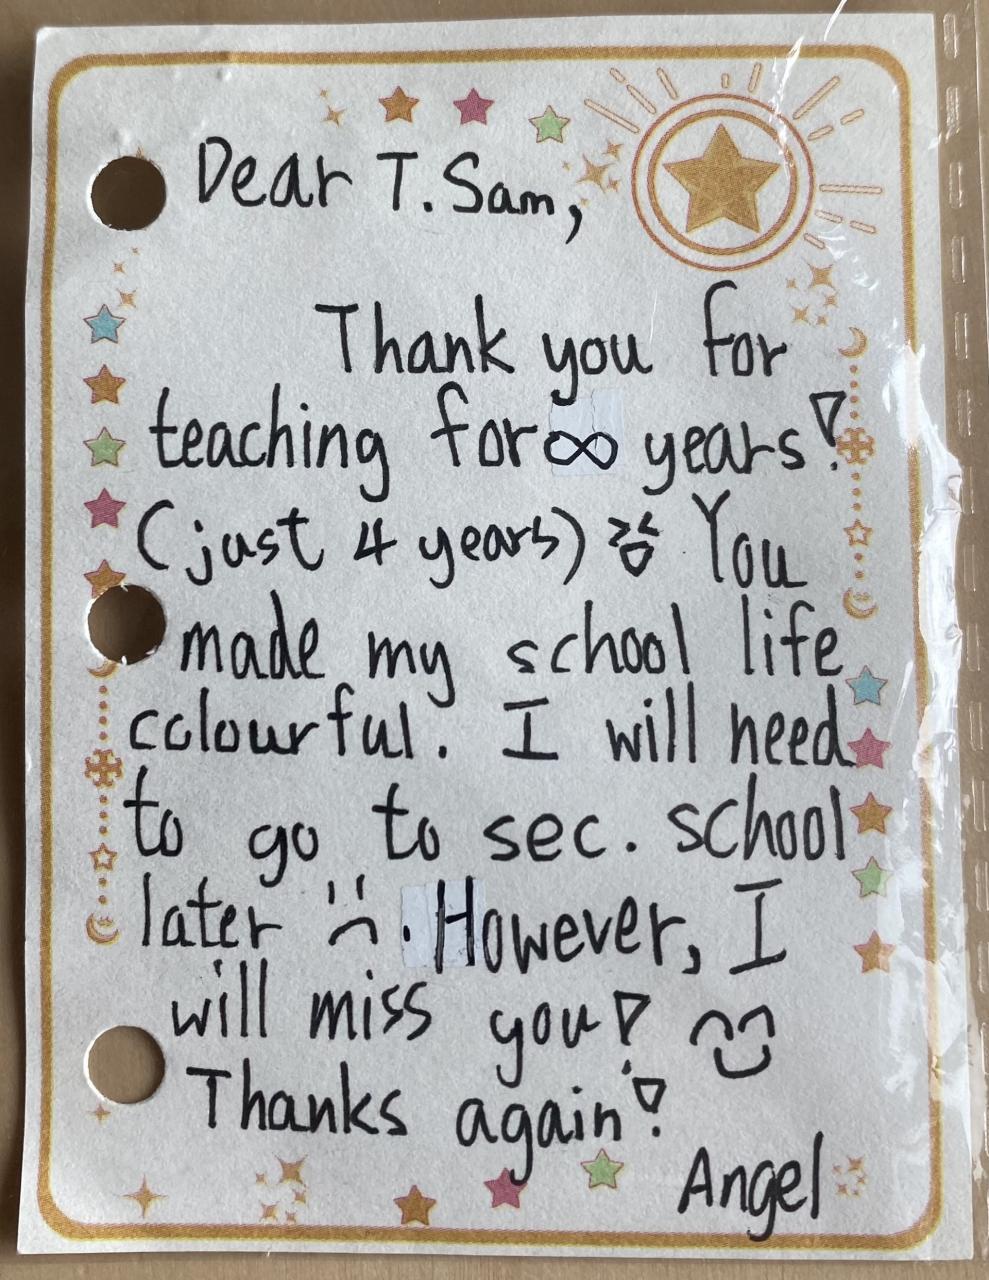 Dear T. Sam,
Thank you for
teaching for ∞ years!
(just 4 years) You
made my school life
colourful. I will need
to go to sec. school
later :( . However, I
will miss you!
Thanks again!
Angel